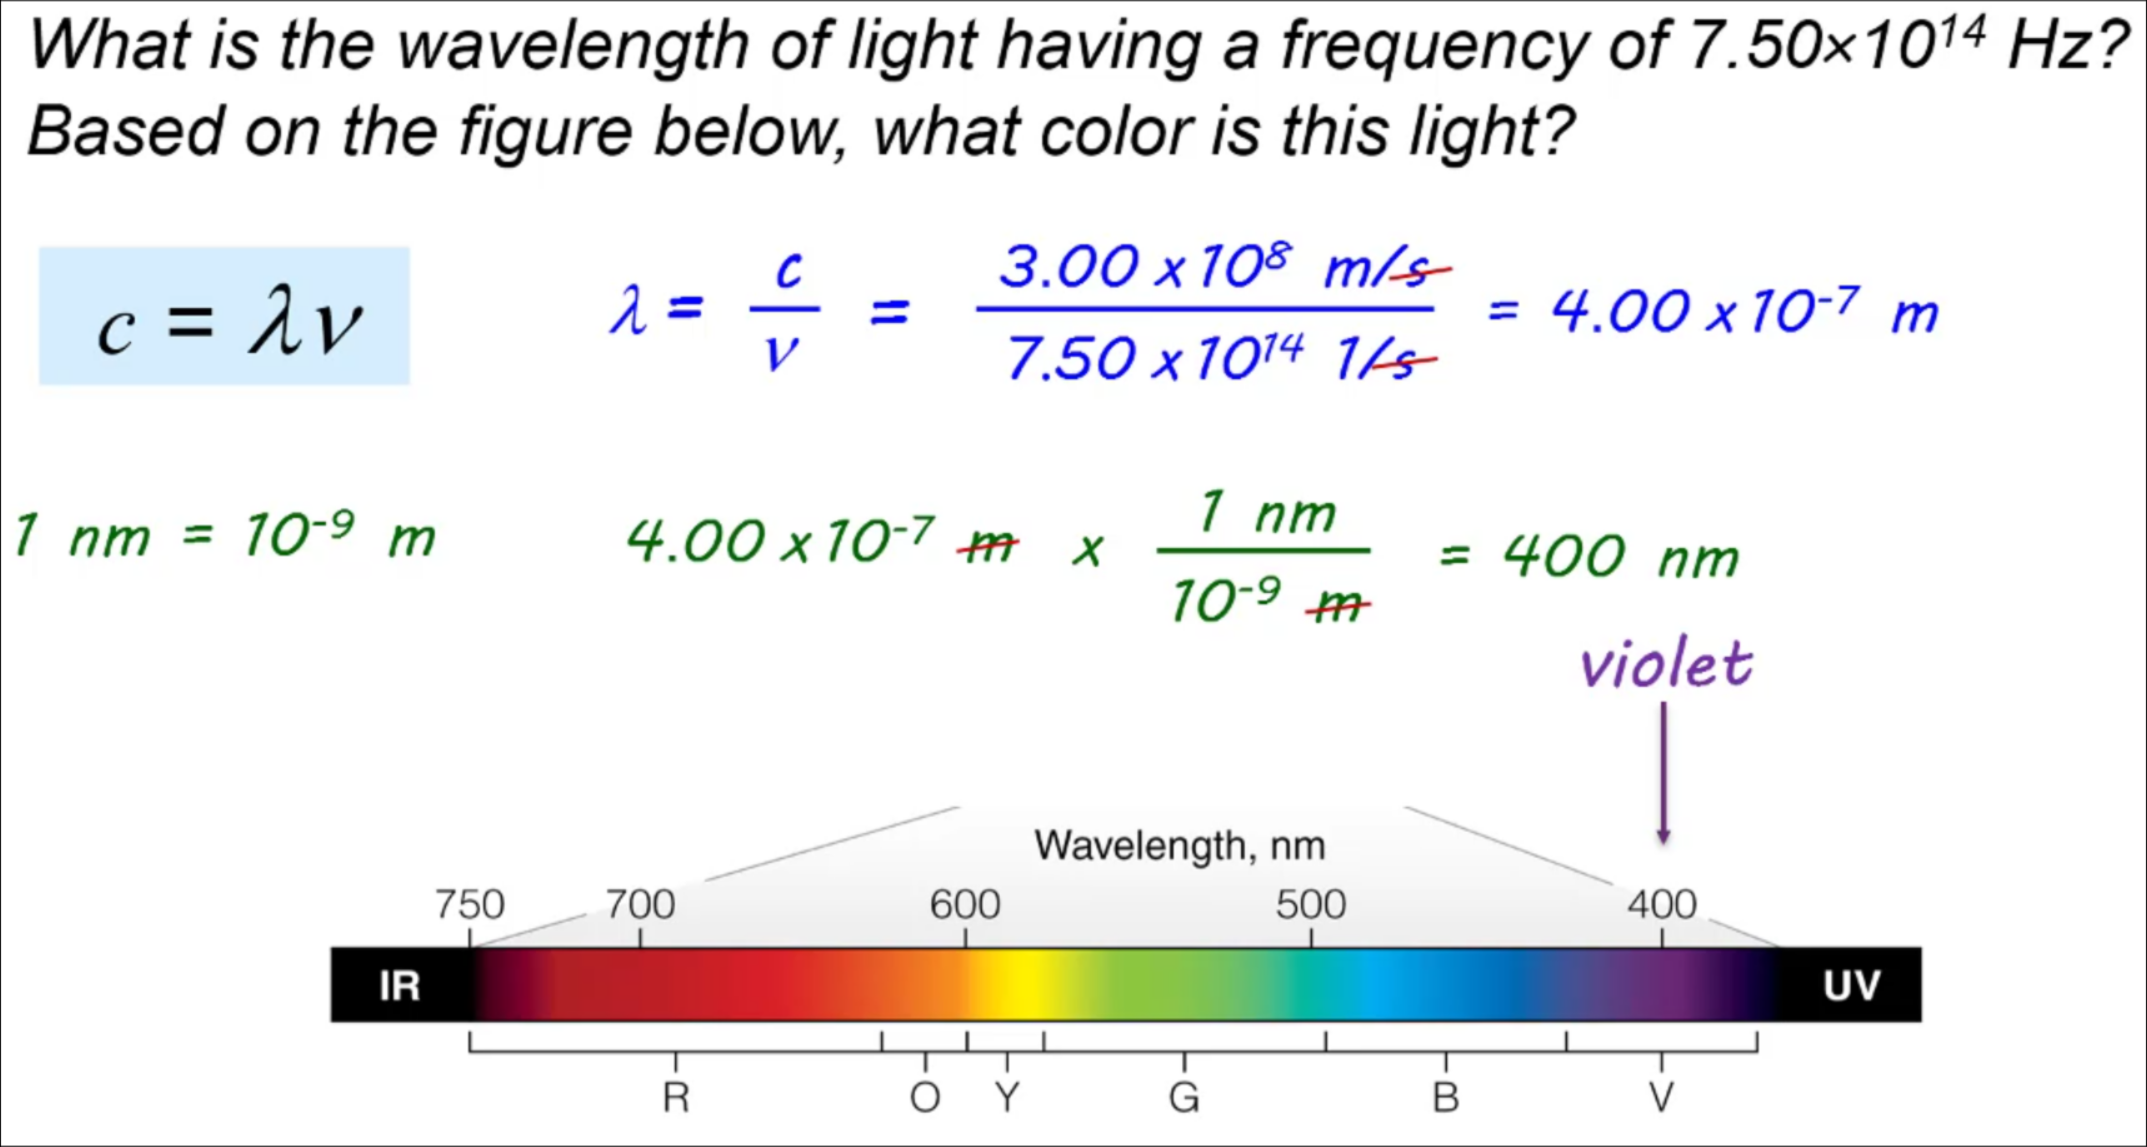 What is the wavelength of light having a frequency of 7.50×10¹⁴ Hz?
Based on the figure below, what color is this light?
c = λν
λ = c/ν = 3.00 x 10⁸ m/s / 7.50 x 10¹⁴ 1/s = 4.00 x 10⁻⁷ m
1 nm = 10⁻⁹ m
4.00 x 10⁻⁷ m x 1 nm / 10⁻⁹ m = 400 nm
violet
Wavelength, nm
750 700 600 500 400
IR UV
R O Y G B V